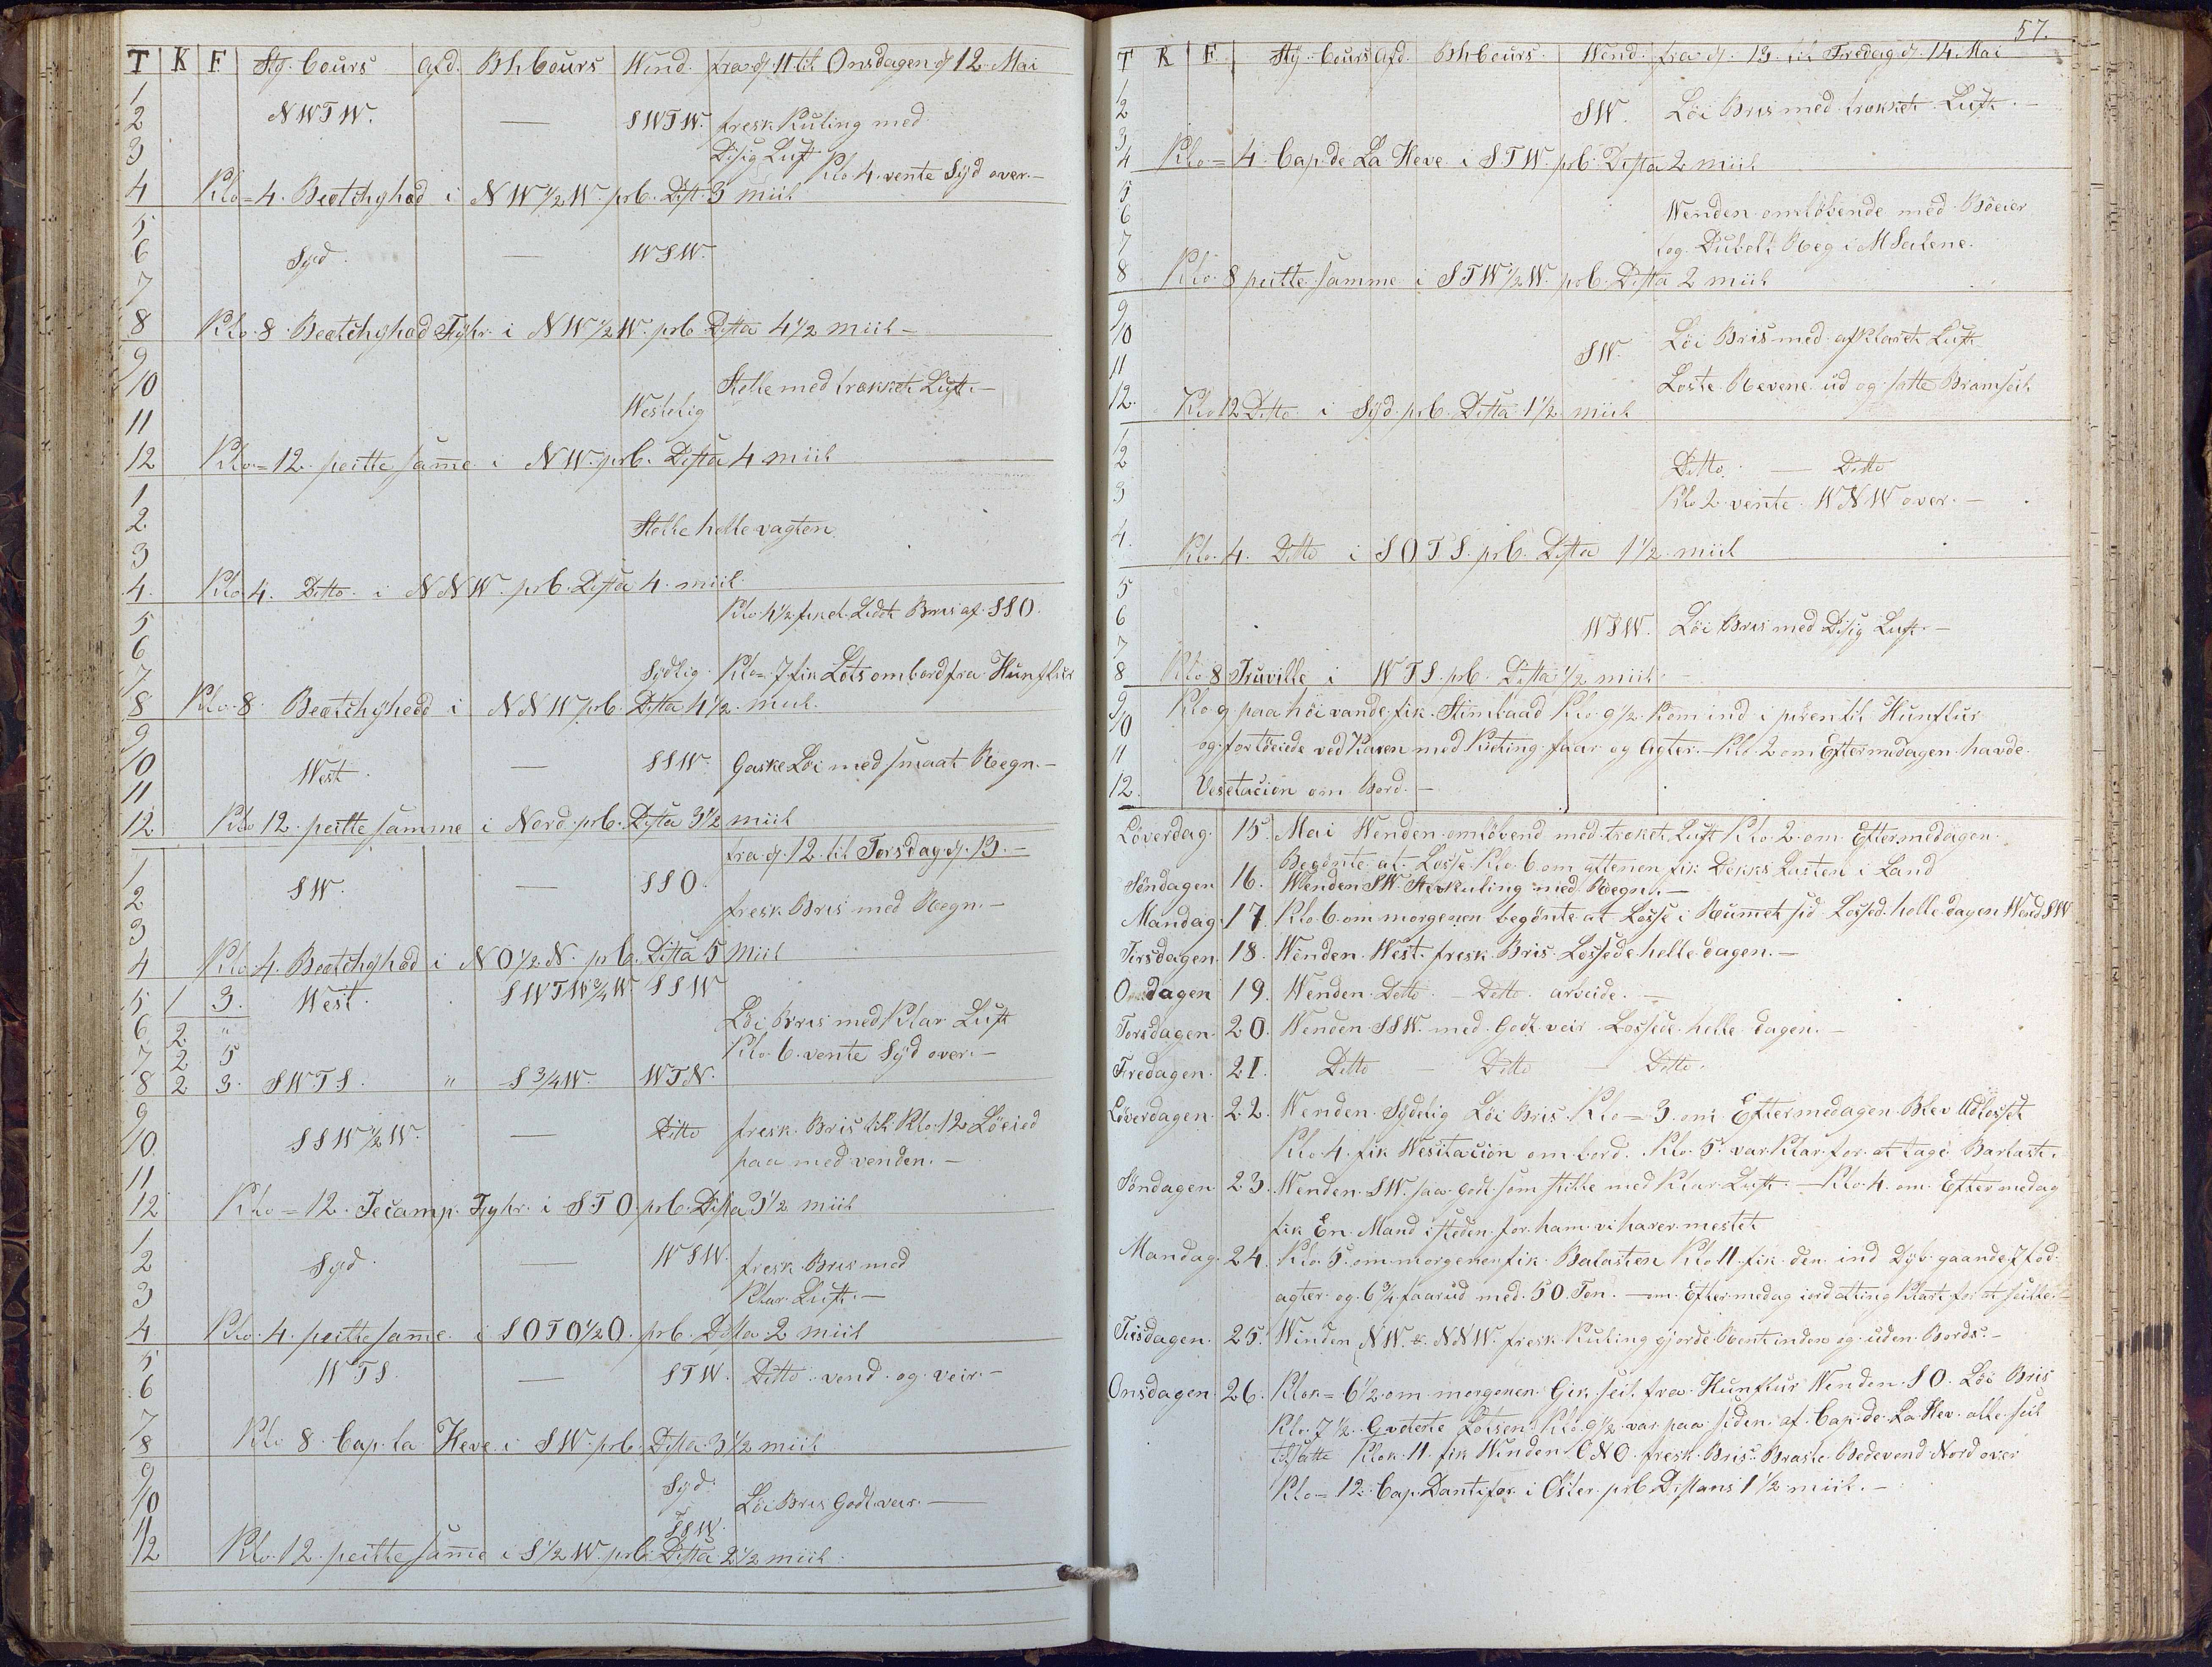 T K F Sty. Cours Afd. Bh Cours Wend. fra d. 11 til Onsdagen d. 12. Mai
1
2 NWTW. — SWTW. fresk Kuling med
3 Disig Luft Klo. 4. vente Syd over. —
4 Klo = 4. Beatchyhed i NW 1/2 W. prb. Dist. 3 miil
5
6 Syd. — WSW.
7
8 Klo. 8. Beatchyhed Fyhr. i NW 1/2 W. prb Dista 4 1/2 miil —
9
10 Stelle med trækket Luft. —
11 Westelig
12 Klo = 12. peitte same i NW. prb. Dista 4 miil
1
2 Stelle helle vagten
3
4. Klo. 4. Ditto. i NNW. prb. Dista 4. miil.
5 Klo. 4 1/2. fik et Lidet Bris af SSO.
6
7 Sydlig. Klo = 7. fik Lots ombord fra Hunflur
8 Klo. 8. Beatchyhedd i NNW prb. Dista 4 1/2. miil.
9
10 West. — SSW. Gaske Löi med smaat Regn. —
11
12 Klo 12. peitte samme i Nord. prb. Dista 3 1/2 miil
fra d. 12. til Torsdag. d. 13. —
1
2 SW. — SSO. fresk Bris med Regn. —
3
4 Klo. 4. Beatchyhed i NO 1/2 N. prb. Ditta 5 miil
5 1 3. West. SWTW 3/4 W SSW
6 2 " Löi Bris med Klar Luft
7 2 5 Klo. 6. vente Syd over. —
8 2 3. SWTS. " S 3/4 W. WTN.
9
10 SSW 1/2 W. — Ditto fresk Bris til Klo. 12 Löeied
11 paa med venden. —
12 Klo = 12. Fecamp. Fyhr. i STO. prb. Dista 3 1/2 miil
1
2 Syd. — WSW. fresk Bris med
3 Klar Luft. —
4 Klo. 4. peitte same. i SOTO 1/2 O. prb. Dista 2 miil
5 WTS. — STW. Ditto. vend. og veir. —
6
7
8 Klo 8. Cap. la Heve. i SW. prb. Dista. 3 1/2 miil
9
10 Syd. Löi Bris Godt veir. —
11 SSW.
12 Klo. 12. peitte same i S 1/2 W. prb. Dista 2 1/2 miil.
57.
T K F Sty. Cours Afd. Bh Cours. Wend. fra d. 13. til Fredag d. 14. Mai
1
2 SW. Löi Bris med trækket Luft. —
3
4 Klo = 4. Cap. de La Heve i STW. prb. Dista 2 miil
5
6 Wenden omlöbende med Böeier
7 og Dubelt Reg i MSeilene.
8 Klo. 8 peitte samme i STW 1/2 W. prb. Dista 2 miil
9
10 SW. Löi Bris med afklaret Luft
11 Loste Revene ud og satte Bramseil
12. Klo 12 Ditto. i Syd. prb. Dista 1 1/2 miil
1
2 Ditto. — Ditto
3 Klo 2 vente WNW over. —
4. Klo. 4. Ditto i SOTS. prb. Dista 1 1/2. miil
5
6 WSW. Löi Bris med Disig Luft. —
7
8 Klo 8 Truville i WTS. prb. Dista 1/2 miil. —
9 Klo 9 paa höi vande fik Stimbaad Klo. 9 1/2. Kom ind i piren til Hunflur
10
11 og fortöiede ved Kaien med Kieting faar og Agter. — Klo. 2 om Eftermedagen havde
12. Vesetacion om Bord. —
Löverdag. 15. Mai Wenden omlöbend med traket Luft Klo. 2. om Eftermedagen.
Begönte at Losse. Klo. 6 om aftenen fik Dekks Lasten i Land
Söndagen 16. Wenden SW. Sterkuling med Regn. —
Mandag. 17. Klo. 6. om morgenen begönte at Losse i Rumet sid Lossed. helle dagen Wend. SW
Tirsdagen. 18. Wenden. West. fresk. Bris. Lossede helle dagen. —
Onsdagen 19. Wenden. Ditto. — Ditto. arveide. —
Torsdagen. 20. Wenden SSW. med. Godt veir. Lossede. helle dagen. —
Fredagen. 21. Ditto — Ditto — Ditto.
Löverdagen. 22. Wenden. Sydelig Löi Bris. Klo = 3. om Eftermedagen Blev Udlosset
Klo. 4. fik Wesitacion om bord. Klo. 5. var Klar for at tage Barlast.
Söndagen. 23. Wenden. SW. saa godt som stille med Klar Luft. — Klo. 4. om. Eftermedag
fik En. Mand isteden for. ham vi haver mestet
Mandag. 24. Klo. 5. om morgenen fik. Balasten Klo 11. fik den ind Dyb gaande 7 fod.
agter. og. 6 3/4 faarud med. 50. Ton. — om. Eftermedag iord alting Klart for at seille. —
Tirsdagen. 25. Winden NW. & NNW. fresk Kuling gjorde Rent inden og uden Bords. —
Onsdagen. 26. Klok = 6 1/2 om morgenen Gik seil fra Hunflur Wenden SO. Löi Bris
Klo. 7 1/2. Lotsen Klo. 9 1/2. var paa siden af Cap. de. La Hev. alle seil
tilsatte Klok. 11. fik Winden ONO. fresk. Bris. Braste Bedevend Nord over
Klo = 12. Cap. Dantifor i Öster. prb Distans 1 1/2 miil. —